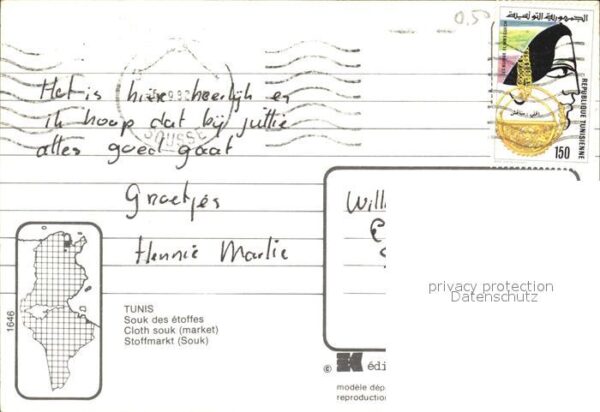 0,50
الجمهورية التونسية
REPUBLIQUE TUNISIENNE
150
9.82
SOUSSE
Het is hier heerlijk en
ik hoop dat bij jullie
alles goed gaat
Groetjes
Hennie Marlie
Will
privacy protection
Datenschutz
1646
TUNIS
Souk des étoffes
Cloth souk (market)
Stoffmarkt (Souk)
© K édi
modèle dép
reproduction